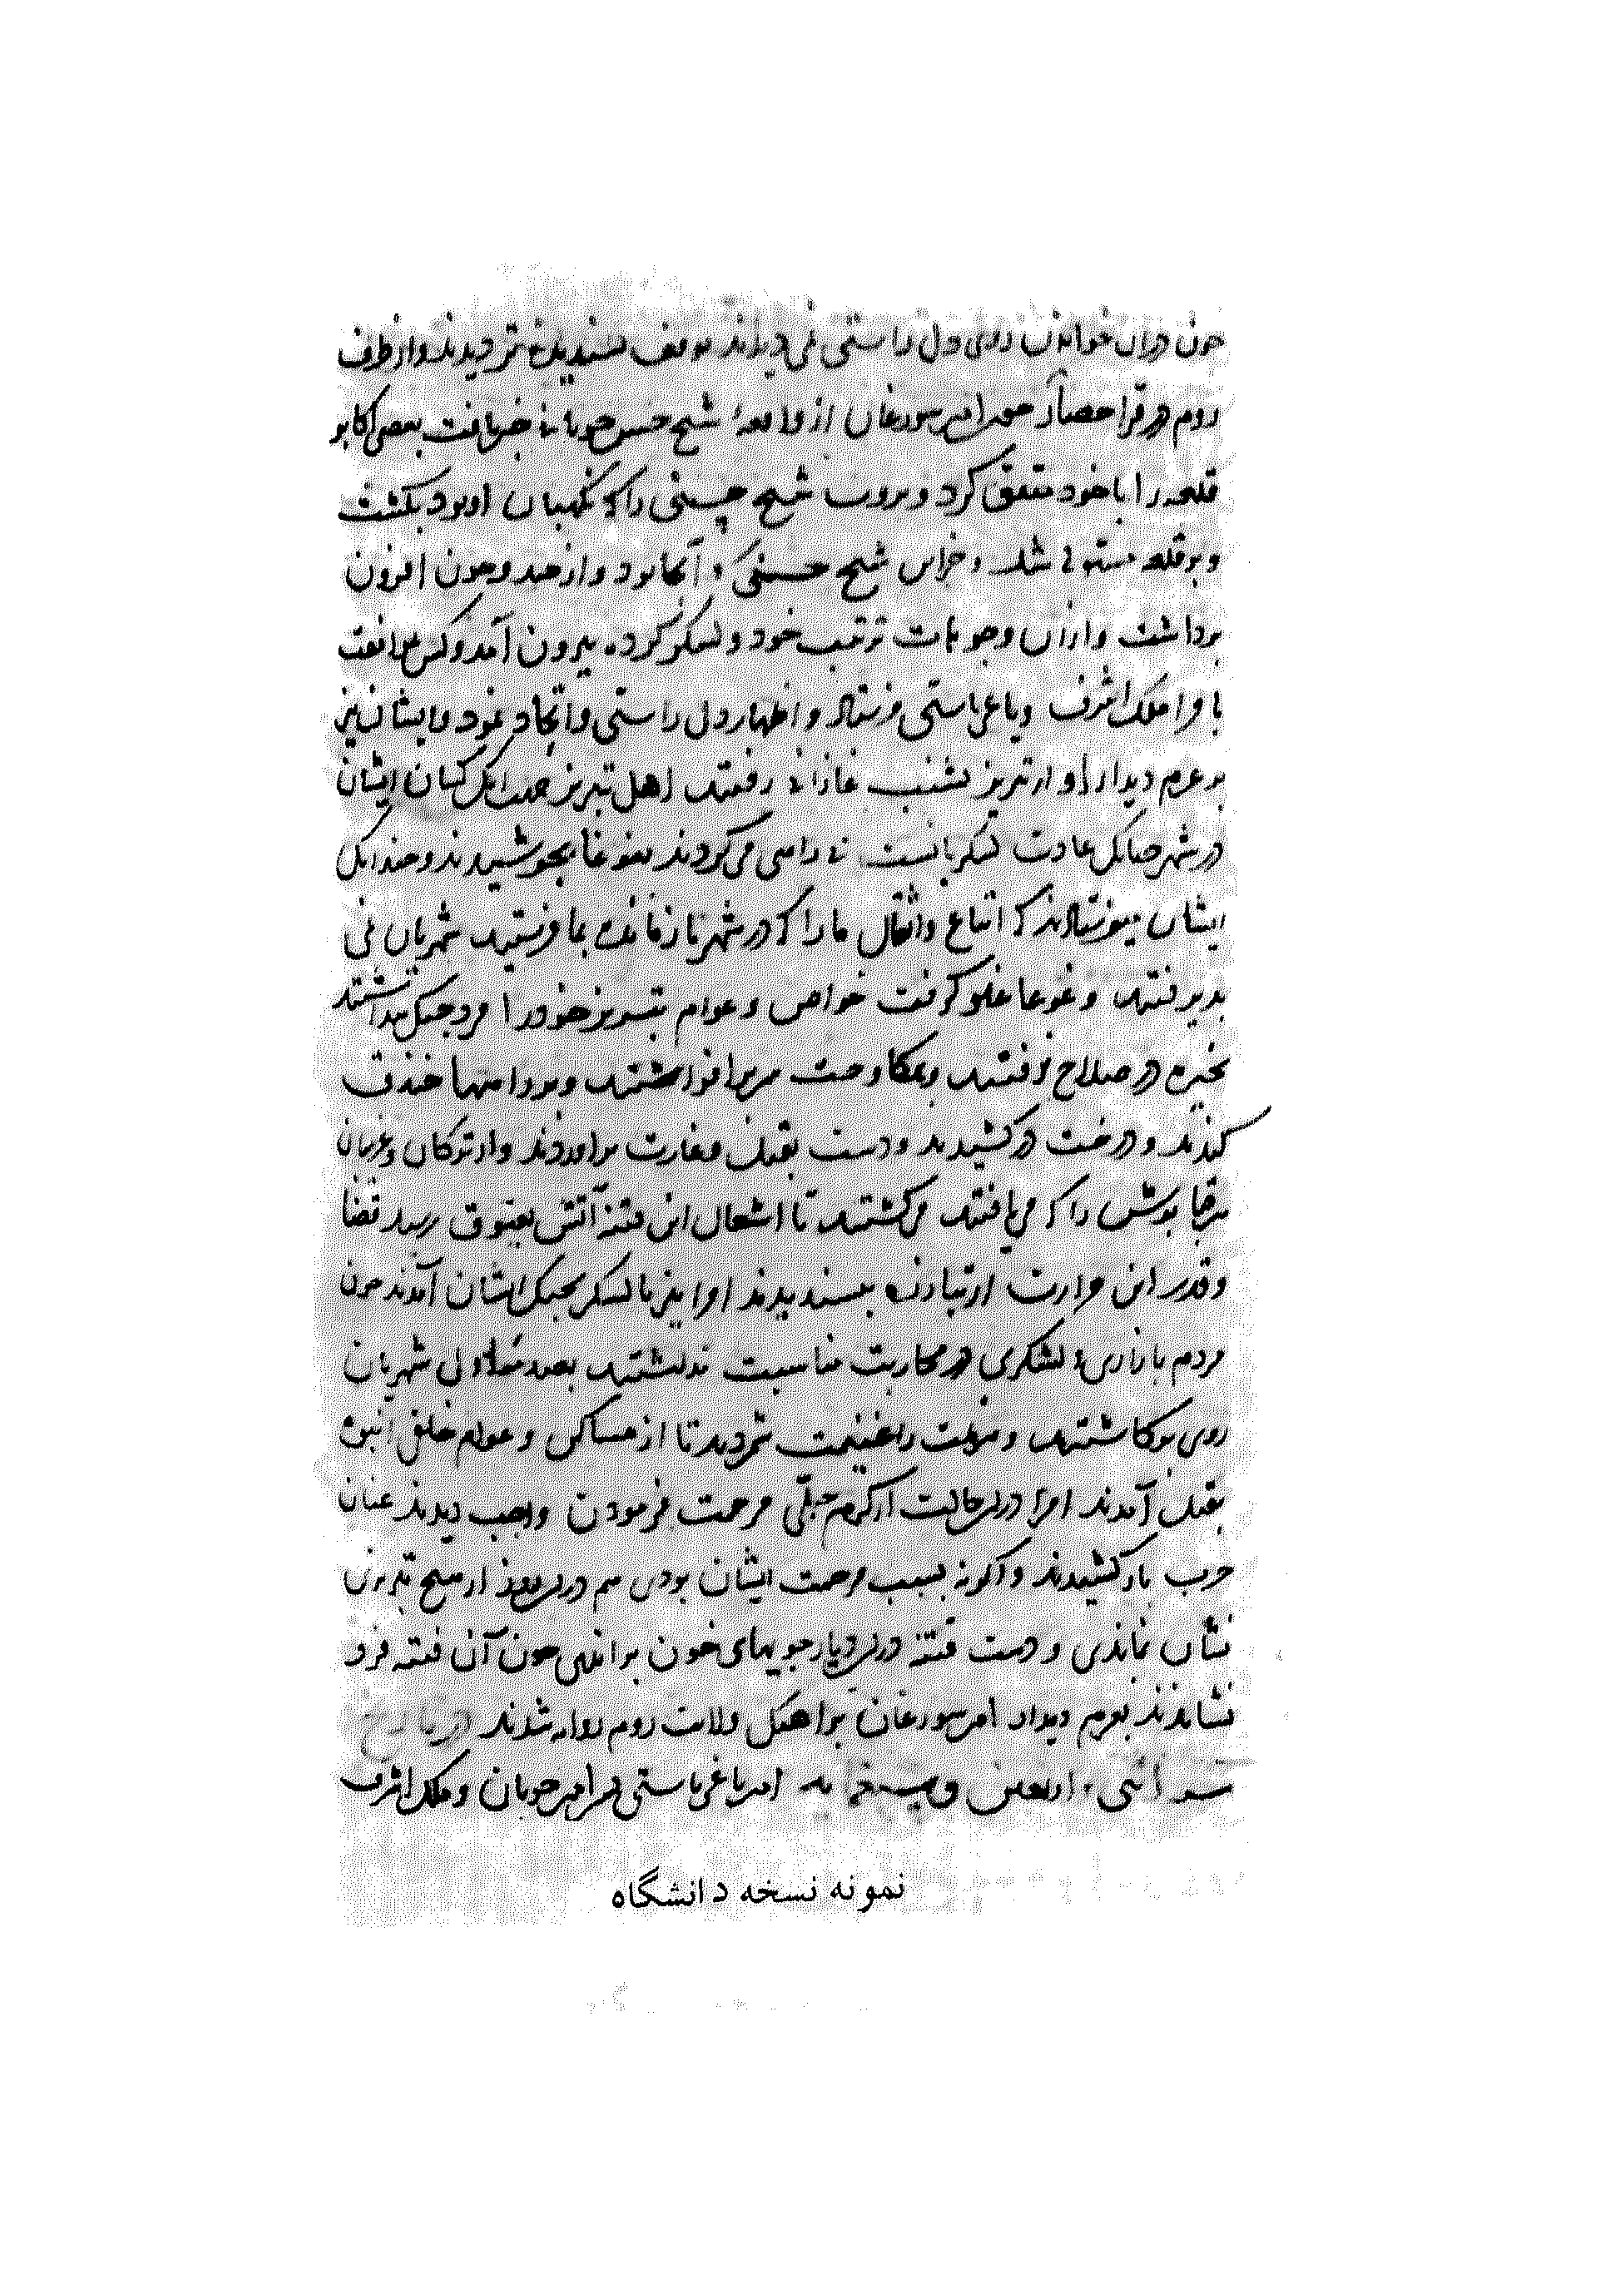 چون در آن خواندن روی دل راستی نمی‌دیدند توقف پسندیده‌تر دیدند و از طرف
روم در قراحصار امیر سورغان از واقعه شیخ حسن چوبانی خبر یافت بعضی اکابر
قلعه را با خود متفق کرد و شیخ حسنی را که نگهبان او بود بکشت
و بر قلعه مستولی شد و خزاین شیخ حسنی که آنجا بود و از حد و حون افزون
برداشت و از آن وجوهات ترتیب خود و لشکر کرده بیرون آمد و کس بموافقت
با ملک اشرف و یاغی‌باستی فرستاد و اظهار دل راستی و اتحاد نمود و ایشان نیز
بر عزم دیدار او از تبریز بشنب غازانی رفتند اهل تبریز جهت آنکه کسان ایشان
در شهر چنانکه عادت لشکریانست ناراستی می‌کردند بغوغا بجوشیدند و چندانکه
ایشان میفرستادند که اتباع و اثقال ما را که در شهر باز مانده بما فرستید شهریان نمی
پذیرفتند و غوغا غلو گرفت خواص و عوام تبریز خود را مرد جنگ پنداشتند
بخیره در سلاح رفتند و بمکاوحت سر برافراشتند و بر دامنها خندق
کندند و درخت در کشیدند و دست بقتل و غارت برآوردند و از ترکان و غریبان
هر قباپوش را که می‌یافتند می‌کشتند تا اشعال این فتنه آتش بعیوق رسید قضا
و قدر این حرارت از تبارزه بپسندیدند امرا نیز با لشکر بجنگ ایشان آمدند چون
مردم بازاری و لشکری در محاربت مناسبت نداشتند بصدمه اولی شهریان
روی برگاشتند و هزیمت را غنیمت شمردند تا از مساکین و عوام خلقی انبوه
بقتل آمدند امرا درین حالت از کرم جبلی مرحمت فرمودن واجب دیدند عنان
حرب باز کشیدند و اگر نه بسبب مرحمت ایشان بودی هم درین روز از صبح تبریز
نشان نماندی و دست فتنه درین دیار جویهای خون براندی چون آن فتنه فرو
نشاندند بعزم دیدار امیر سورغان براهنگ ولایت روم روانه شدند در تاریخ
سنه اثنی و اربعین و سبعمایه امیر یاغی‌باستی پسر امیر چوبان و ملک اشرف
نمونه نسخه دانشگاه